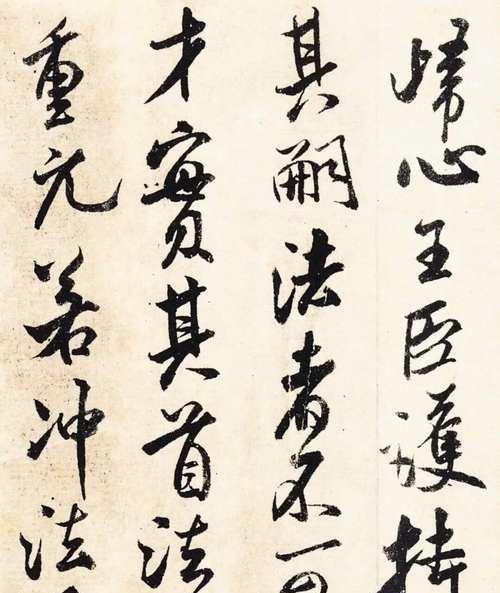 歸心王臣護持
其嗣法者不一
才實其首法
重元若冲法